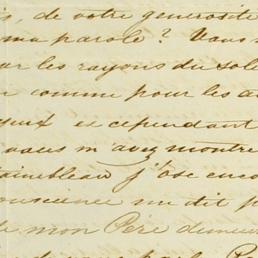 , de votre generosité
ma parole? Vous
les rayons du sole
comme pour les a
et cependant
vous m'avez montré
ainebleau j'ose enco
me dit p
de mon Père